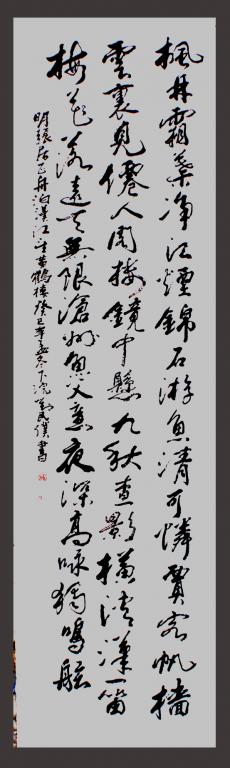 楓林霜葉净江煙錦石游魚清可憐賈客帆檣
雲裏見僊人閣樓鏡中懸九秋查影橫清漢一笛
梅花落遠天無限滄州魚父意夜深高咏獨鳴舷
明張居正舟泊漢江望黄鶴樓癸巳年孟冬下浣書